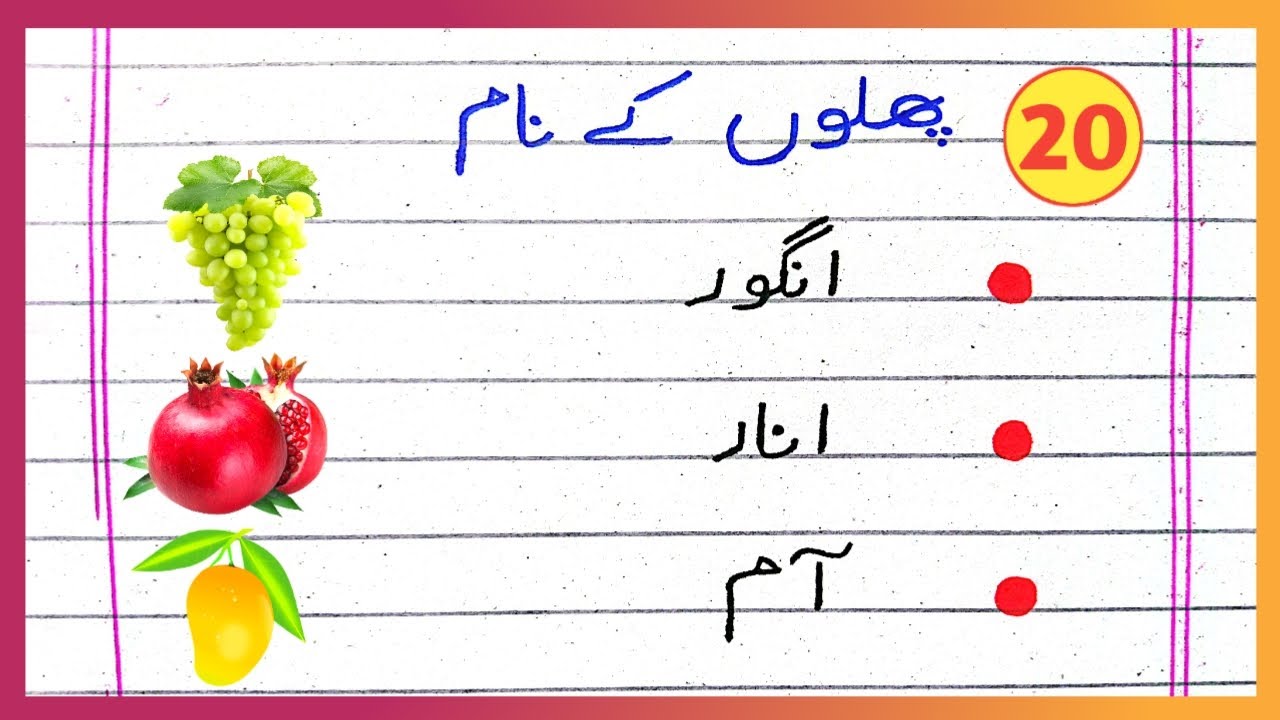 20 پھلوں کے نام
انگور
انار
آم